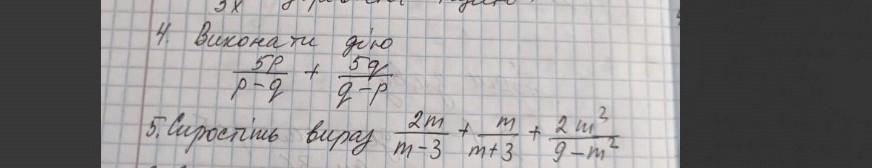 3x
4. Виконати дію
5p/(p-q) + 5q/(q-p)
5. Спростіть вираз 2m/(m-3) + m/(m+3) + 2m²/(9-m²)